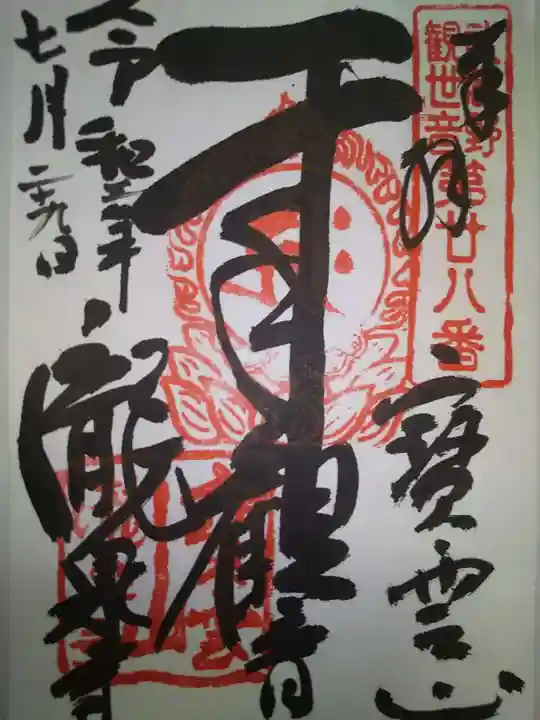 武蔵野
観世音第廿八番
奉拝
寶雲山
千手觀音
令和 年
七月二十九日
瀧泉寺